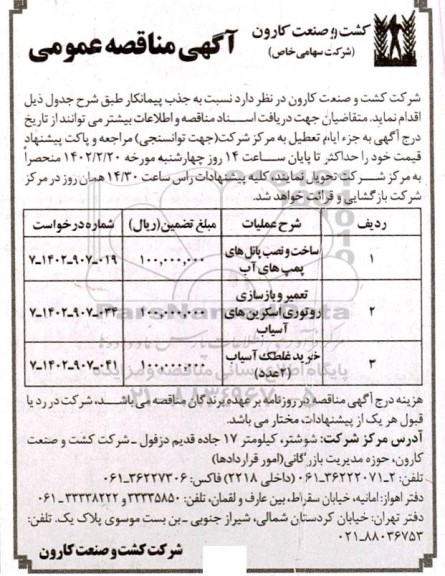 کشت و صنعت کارون
(شرکت سهامی خاص)
آگهی مناقصه عمومی
شرکت کشت و صنعت کارون در نظر دارد نسبت به جذب پیمانکار طبق شرح جدول ذیل
اقدام نماید. متقاضیان جهت دریافت اسناد مناقصه و اطلاعات بیشتر می توانند از تاریخ
درج آگهی به جزء ایام تعطیل به مرکز شرکت (جهت توانسنجی) مراجعه و پاکت پیشنهاد
قیمت خود را حداکثر تا پایان ساعت ۱۴ روز چهارشنبه مورخه ۱۴۰۲/۲/۲۰ منحصراً
به مرکز شرکت تحویل نمایند، کلیه پیشنهادات راس ساعت ۱۴/۳۰ همان روز در مرکز
شرکت بازگشایی و قرائت خواهد شد.
ردیف شرح عملیات مبلغ تضمین (ریال) شماره درخواست
۱ ساخت و نصب پانل های پمپ های آب ۱۰۰,۰۰۰,۰۰۰ ۷-۱۴۰۲-۹۰۷-۰۱۹
۲ تعمیر و بازسازی روتوری اسکرین های آسیاب ۱۰۰,۰۰۰,۰۰۰ ۷-۱۴۰۲-۹۰۷-۰۳۴
۳ خرید غلطک آسیاب (۲عدد) ۱۰۰,۰۰۰,۰۰۰ ۷-۱۴۰۲-۹۰۷-۰۴۱
هزینه درج آگهی مناقصه در روزنامه بر عهده برندگان مناقصه می باشد، شرکت در رد یا
قبول هر یک از پیشنهادات مختار می باشد.
آدرس مرکز شرکت: شوشتر، کیلومتر ۱۷ جاده قدیم دزفول - شرکت کشت و صنعت
کارون، حوزه مدیریت بازرگانی (امور قراردادها)
تلفن: ۲-۳۶۲۲۲۰۷۱-۰۶۱ (داخلی ۲۲۱۸) فاکس: ۳۶۲۲۷۳۰۶-۰۶۱
دفتر اهواز: امانیه، خیابان سقراط، بین عارف و لقمان، تلفن: ۳۳۳۳۵۸۵۰ و ۳۳۳۳۸۲۲۲-۰۶۱
دفتر تهران: خیابان کردستان شمالی، شیراز جنوبی - بن بست موسوی پلاک یک. تلفن:
۸۸۰۳۶۷۵۳-۰۲۱
شرکت کشت و صنعت کارون